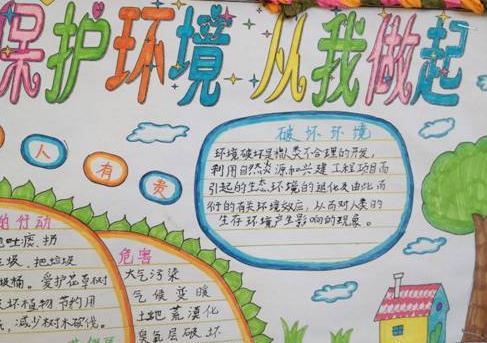 保护环境 从我做起
人有责
破坏环境
环境破坏是指人类不合理的开发，
利用自然资源和兴建工程项目而
引起的生态环境的退化及由此而
衍的有关环境效应，从而对人类的
生存环境产生影响的现象。
的行动
地吐痰、扔
垃圾、把垃圾
圾桶。爱护花草树
坏植物 节约用
减少树木砍伐。
危害
大气污染
气候变暖
土地荒漠化
臭氧层破坏